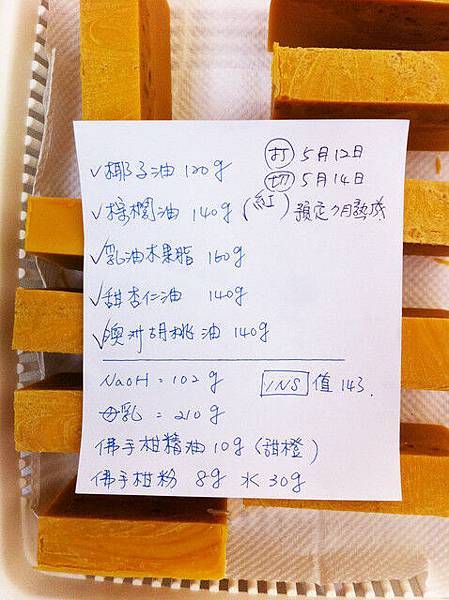 ✓椰子油 120g
打 5月12日
切 5月14日
✓棕櫚油 140g (紅) 預定7月熟成
✓乳油木果脂 160g
✓甜杏仁油 140g
✓澳洲胡桃油 140g
NaOH = 102g INS 值 143.
母乳 = 210g
佛手柑精油 10g (甜橙)
佛手柑粉 8g 水 30g